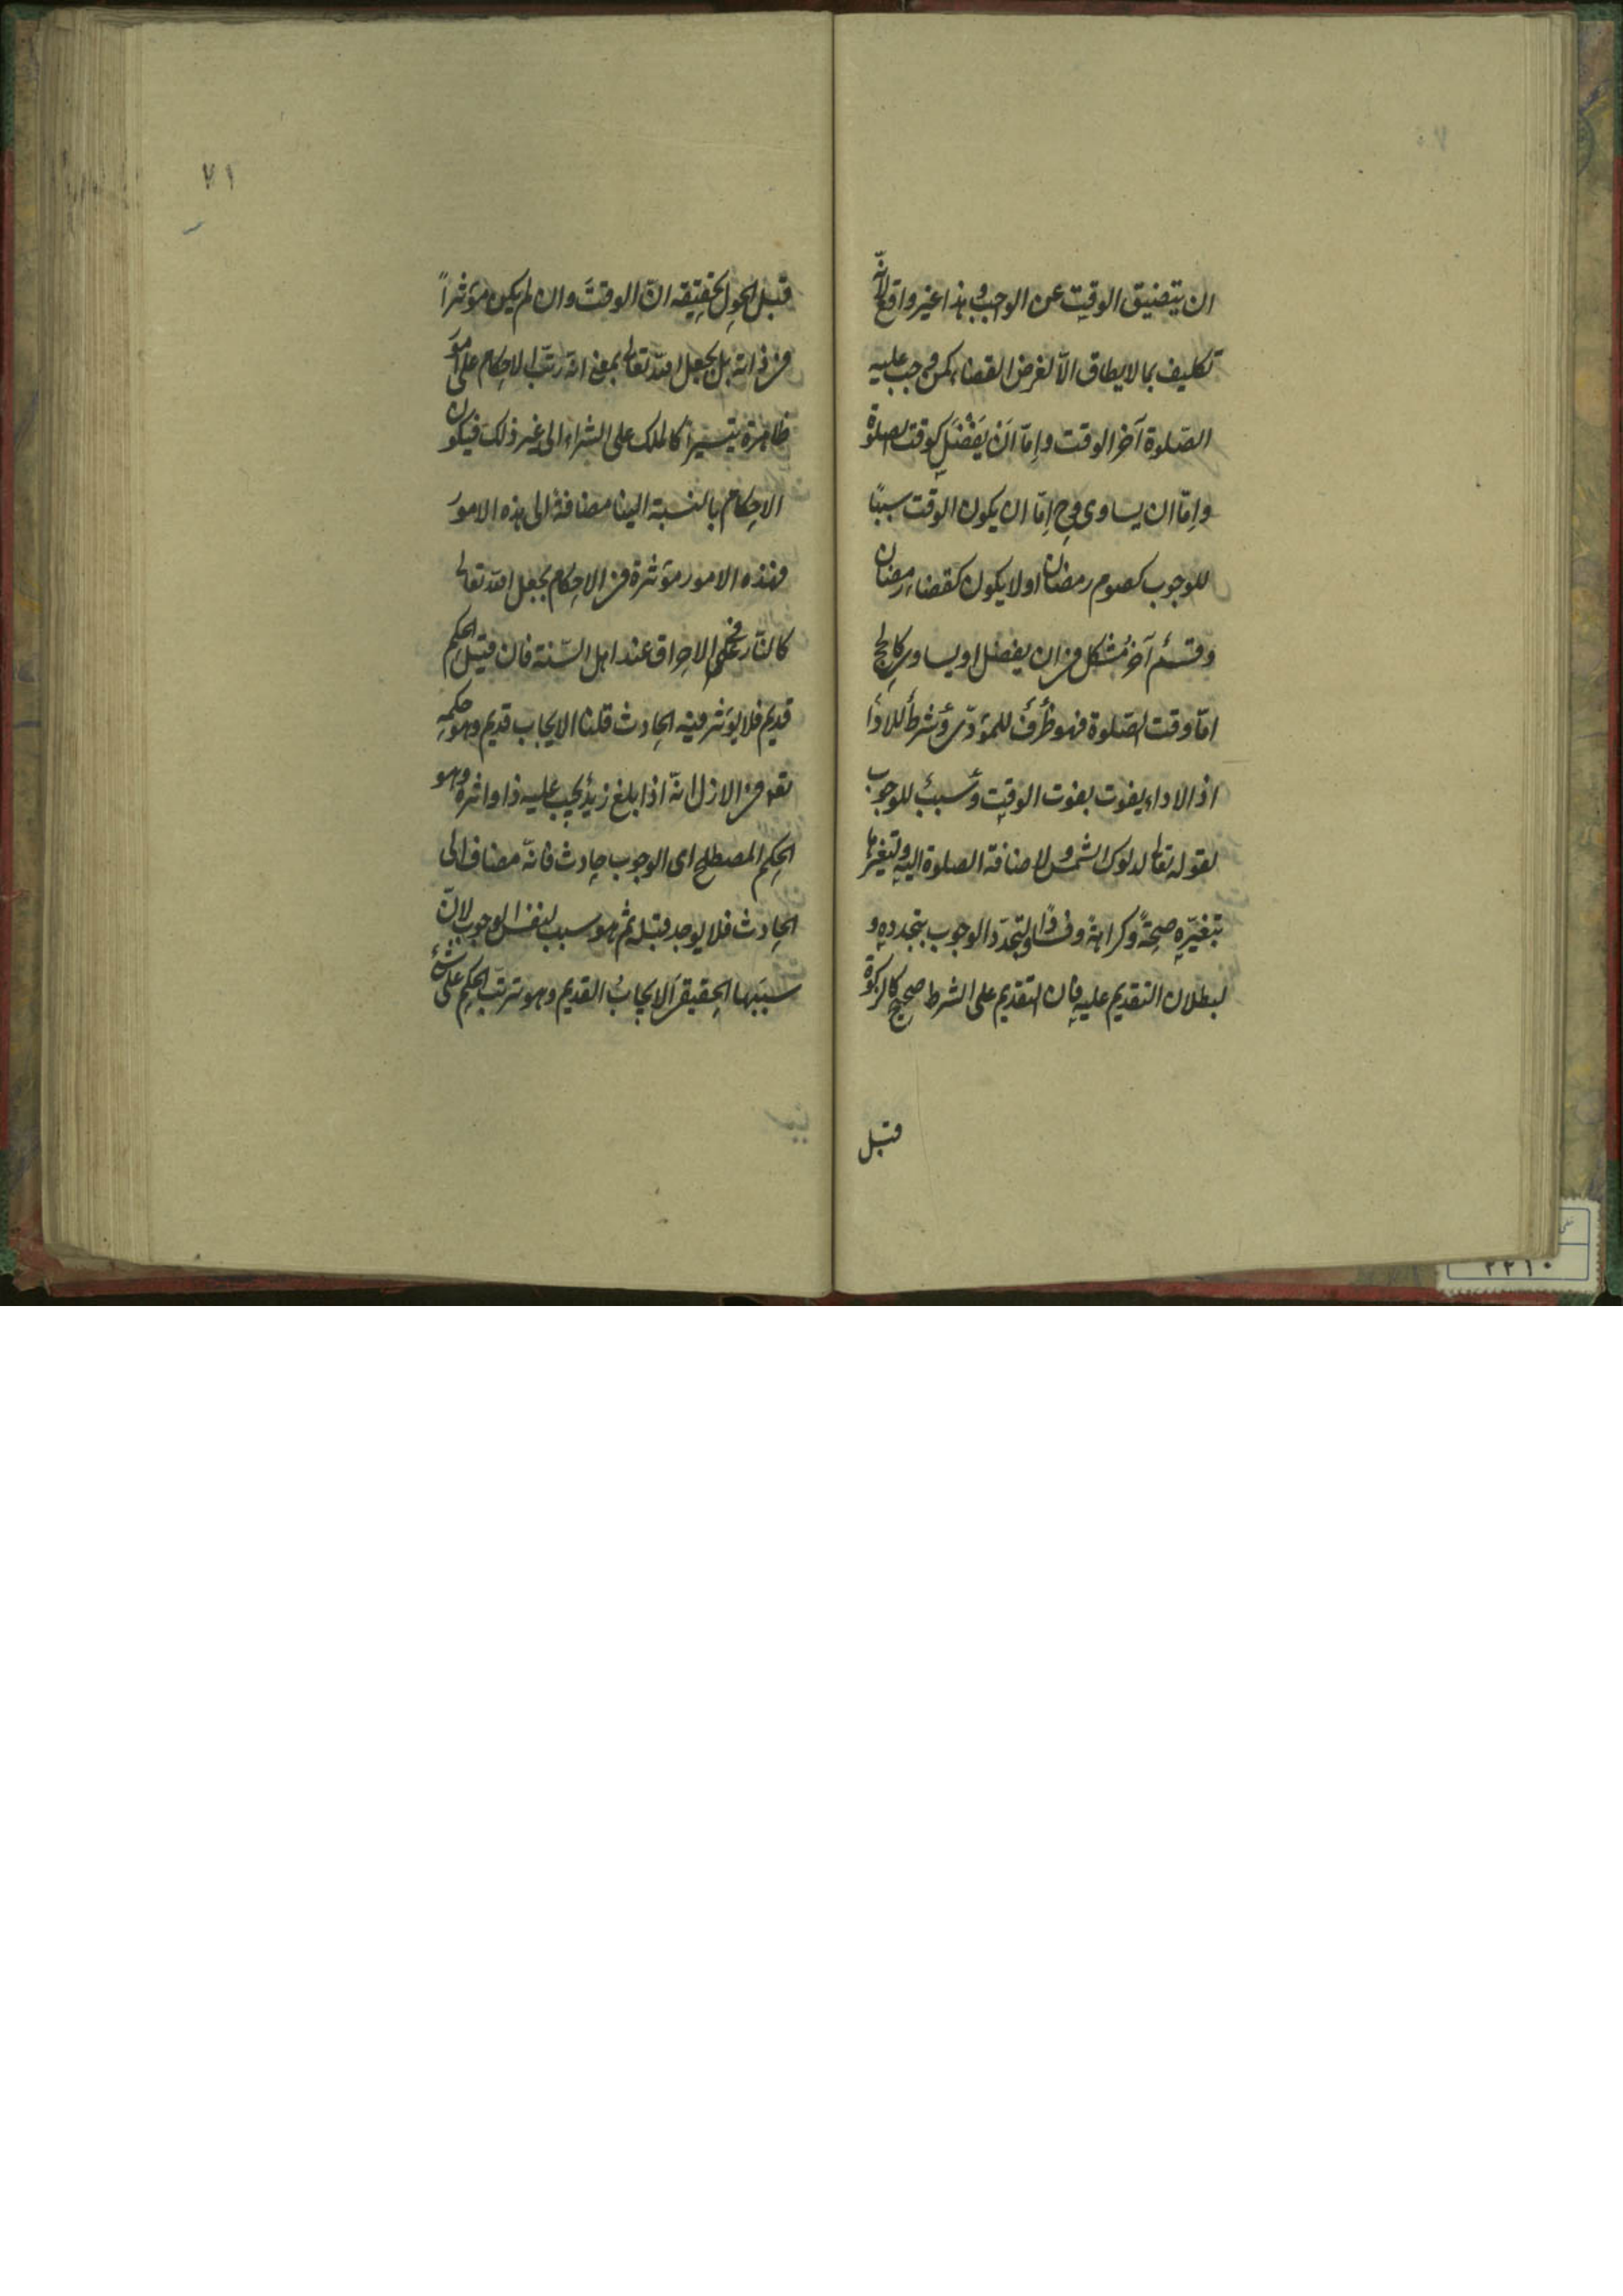 ان يتضيق الوقت عن الواجب وهذا غير واقع لانّه
تكليف بما لا يطاق الّا لغرض القضا كمن وجب عليه
الصّلوة آخر الوقت وامّا اَنْ يَفْضُلَ كوقت الصلوة
وامّا ان يساوى وح امّا ان يكون الوقت سببًا
للوجوب كصوم رمضان او لا يكون كقضاء رمضان
وقسمٌ آخر مُشكل فى ان يفضل او يساوى كالحج
امّا وقت الصّلوة فهو ظرفٌ للمؤدّى وشرطٌ للاداء
اذ الاداء يفوت بفوت الوقت وسببٌ للوجوب
لقوله تعالى لدلوك الشمس ولاضافة الصلوة اليه ولتغيرها
بتغيّره صحةً وكراهة وفسادًا ولتجدّد الوجوب بتجدده و
لبطلان التقديم عليه فان التقديم على الشرط صحيح كالزكوة
قبل
٧١
قبل الحول تحقيقه انّ الوقتَ وان لم يكن مؤثراً
فى ذاته بل بجعل الله تعالى بمعنى انه رتّب الاحكام على امور
ظاهرة تيسيراً كالملك على الشراء الى غير ذلك فيكون
الاحكام بالنسبة الينا مضافةً الى هذه الامور
فهذه الامور مؤثرة فى الاحكام بجعل الله تعالى
كالنّار فى الاحراق عند اهل السّنة فان قيل الحكم
قديم فلا يؤثر فيه الحادث قلنا الايجاب قديم وهو حكمه
تعالى فى الازل انّه اذا بلغ زيدٌ يجب عليه ذا واثره وهو
الحكم المصطلح اى الوجوب حادث فانّه مضاف الى
الحادث فلا يوجد قبله ثم هو سبب لنفس الوجوب لانّ
سببها الحقيقى الايجابُ القديم وهو ترتّب الحكم على شئ